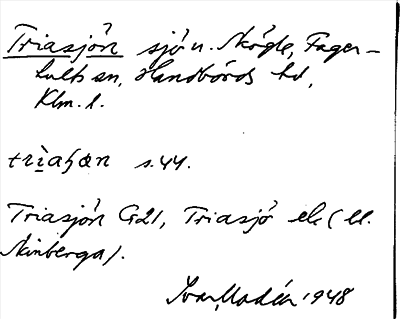 Triasjön sjö u. Skögle, Fager-
hults sn, Handbörds hd,
Klm. l.
trìaɧən s. 44.
Triasjön G21, Triasjö ek (bl.
Skinberga).
Ivar Modéer 1948